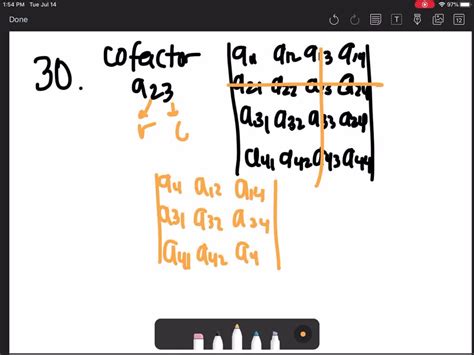 1:54 PM Tue Jul 14
97%
Done
30.
cofactor
a23
r c
a11 a12 a13 a14
a21 a22 a23 a24
a31 a32 a33 a34
a41 a42 a43 a44
a11 a12 a14
a31 a32 a34
a41 a42 a4